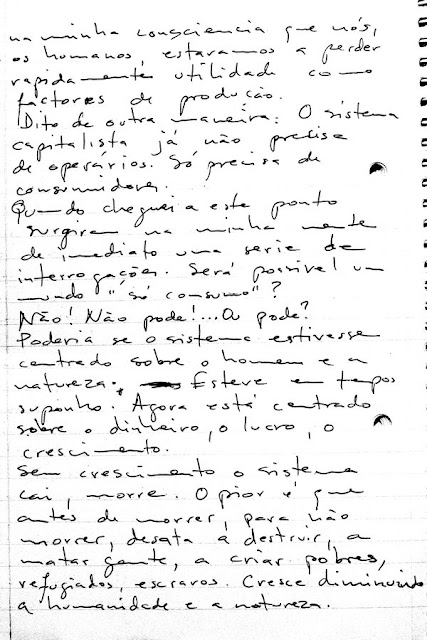 na minha consciencia que nós,
os humanos, estavamos a perder
rapidamente utilidade como
factores de produção.
Dito de outra maneira: O sistema
capitalista já não precisa
de operários. Só precisa de
consumidores.
Quando cheguei a este ponto
surgiram na minha mente
de imediato uma serie de
interrogações. Será possível um
mundo "só consumo"?
Não! Não pode!...Ou pode?
Poderia se o sistema estivesse
centrado sobre o homem e a
natureza. Esteve em tempos
suponho. Agora está centrado
sobre o dinheiro, o lucro, o
crescimento.
Sem crescimento o sistema
cai, morre. O pior é que
antes de morrer, para não
morrer, desata a destruir, a
matar gente, a criar pobres,
refugiados, escravos. Cresce diminuindo
a humanidade e a natureza.